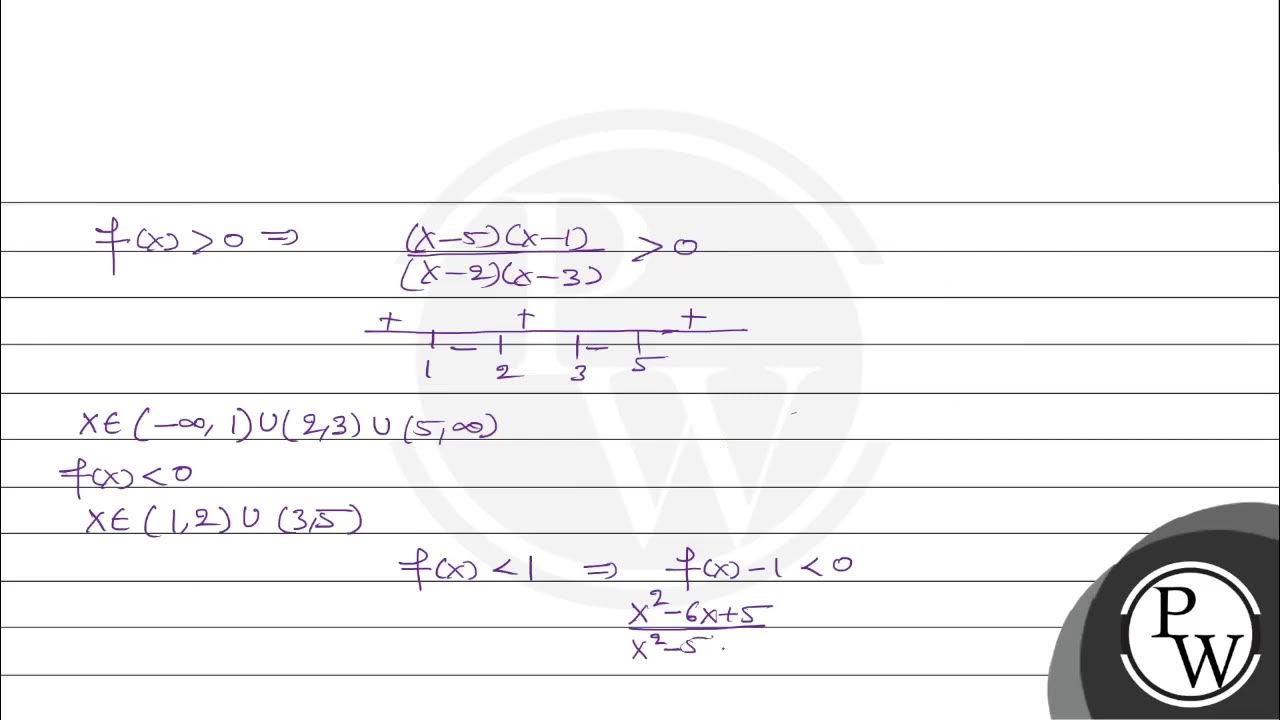 f(x) > 0 ⇒ (x-5)(x-1)/(x-2)(x-3) > 0
+ + +
1 - 2 3 - 5
x∈(-∞, 1)∪(2,3)∪(5,∞)
f(x) < 0
x∈(1,2)∪(3,5)
f(x) < 1 ⇒ f(x) - 1 < 0
x²-6x+5
x²-5
P
W
P
W